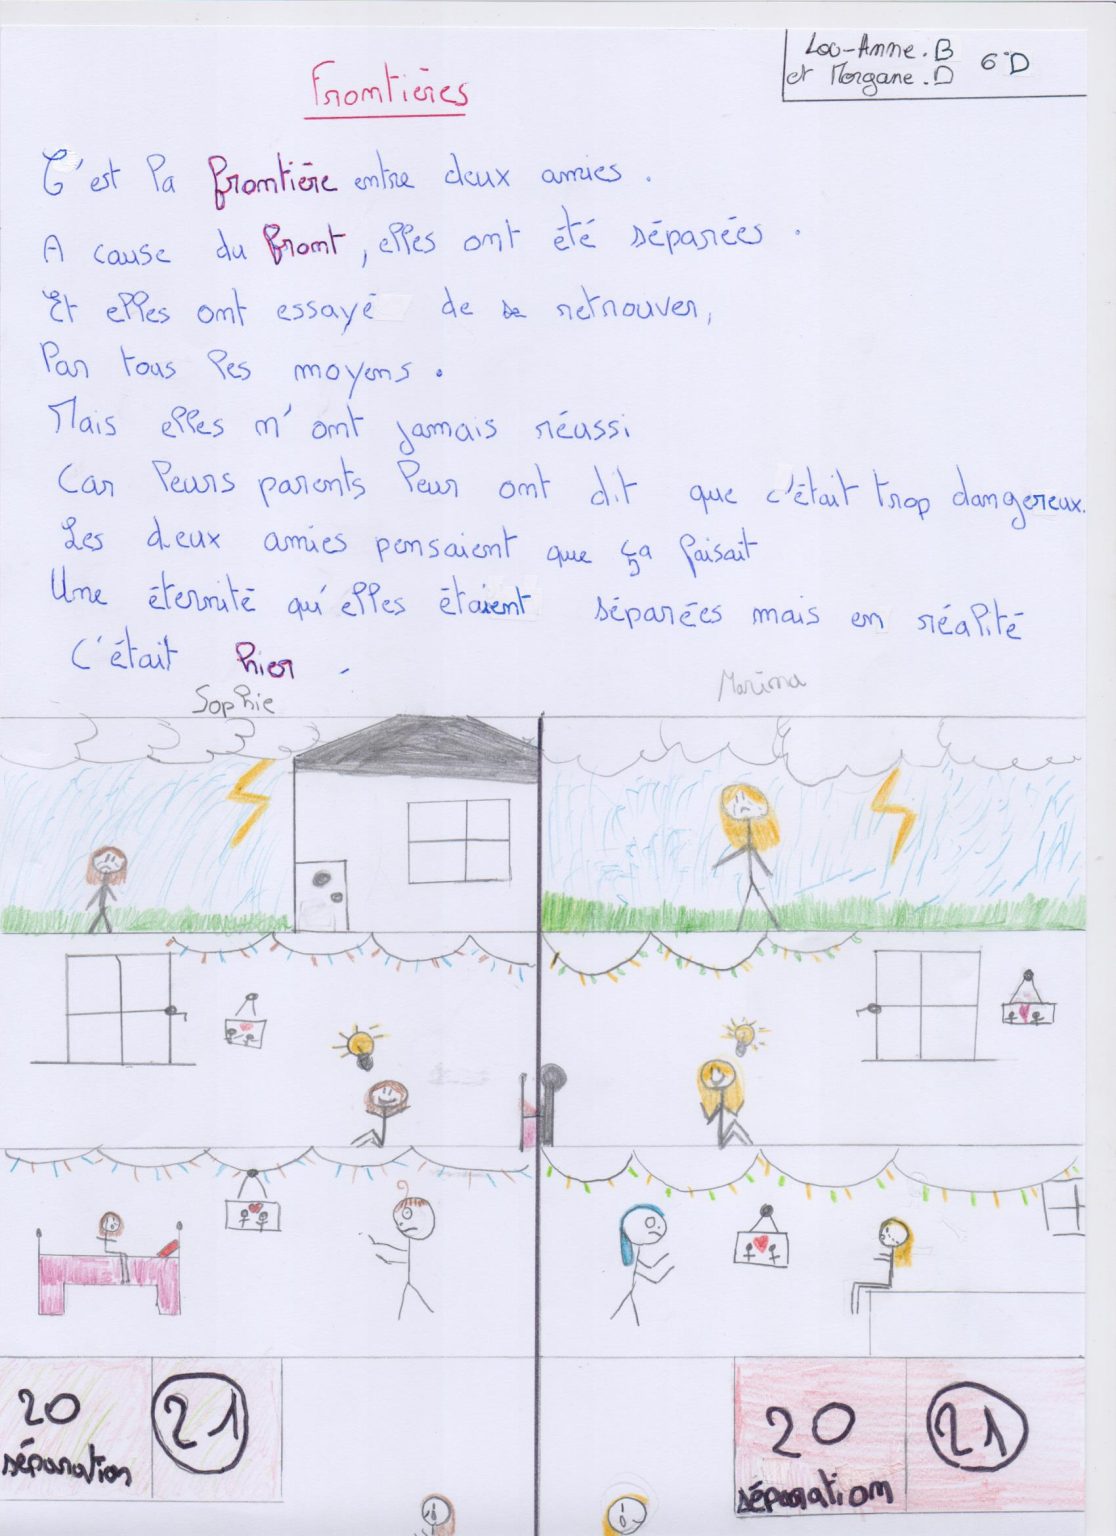 Lou-Anne.B
et Morgane.D 6°D
Frontières
C'est la frontière entre deux amies.
A cause du front, elles ont été séparées.
Et elles ont essayé de se retrouver,
Par tous les moyens.
Mais elles n'ont jamais réussi
Car leurs parents leur ont dit que c'était trop dangereux.
Les deux amies pensaient que ça faisait
Une éternité qu'elles étaient séparées mais en réalité
C'était hier.
Sophie
Marina
20 21
séparation
20 21
séparation